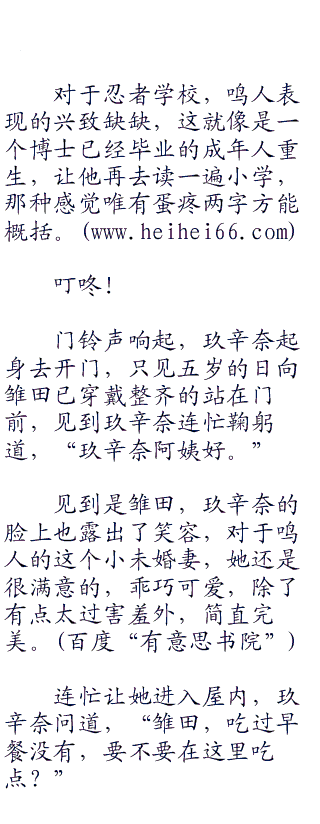 对于忍者学校，鸣人表
现的兴致缺缺，这就像是一
个博士已经毕业的成年人重
生，让他再去读一遍小学，
那种感觉唯有蛋疼两字方能
概括。(www.heihei66.com)
叮咚！
门铃声响起，玖辛奈起
身去开门，只见五岁的日向
雏田已穿戴整齐的站在门
前，见到玖辛奈连忙鞠躬
道，“玖辛奈阿姨好。”
见到是雏田，玖辛奈的
脸上也露出了笑容，对于鸣
人的这个小未婚妻，她还是
很满意的，乖巧可爱，除了
有点太过害羞外，简直完
美。(百度“有意思书院”)
连忙让她进入屋内，玖
辛奈问道，“雏田，吃过早
餐没有，要不要在这里吃
点？”